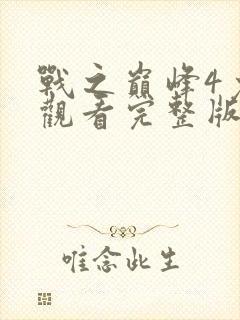 戰之巔峰4
觀看完整版
唯念此生